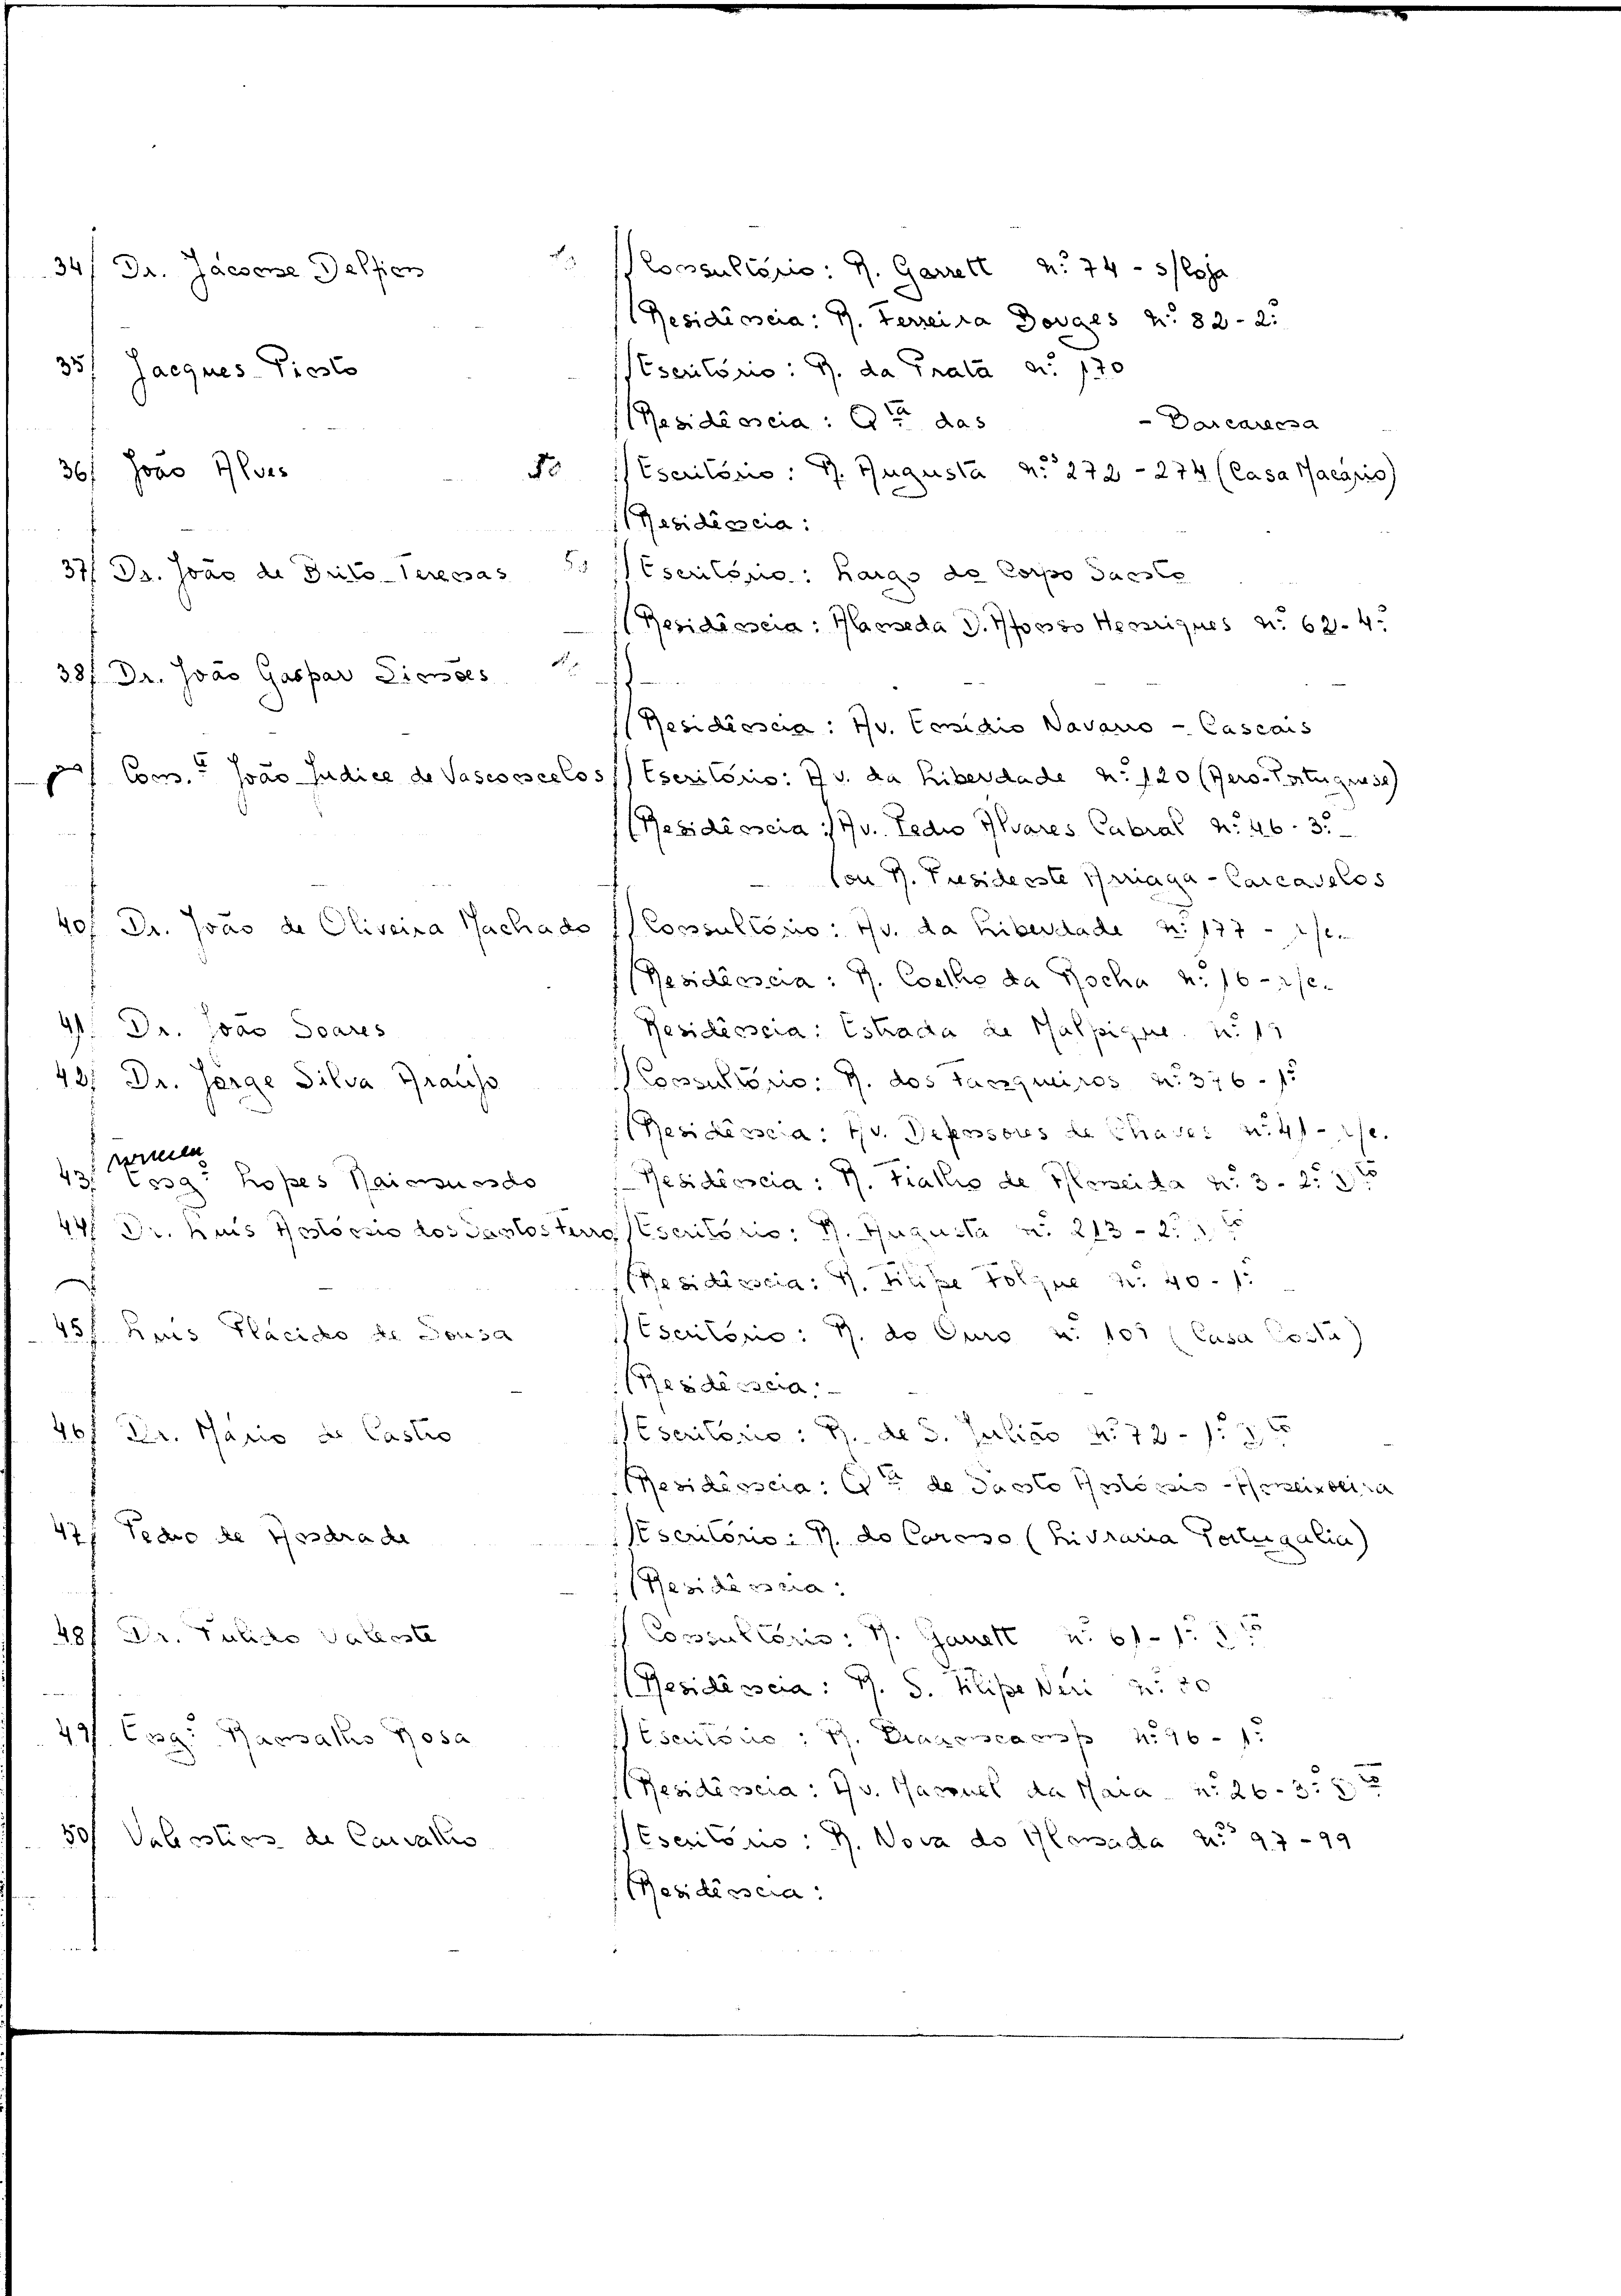 34/ Dr. Jácome Delfim Consultório: R. Garrett n.º 74 - s/loja
Residência: R. Ferreira Borges n.º 82 - 2.º
35/ Jacques Pinto Escritório: R. da Prata n.º 170
Residência: Q.ta das - Barcarena
36/ João Alves Escritório: R. Augusta n.º 272 - 274 (Casa Macário)
Residência:
37/ Dr. João de Brito Teremas Escritório: Largo do Corpo Santo
Residência: Alameda D. Afonso Henriques n.º 62 - 4.º
38/ Dr. João Gaspar Simões
Residência: Av. Emídio Navarro - Cascais
Com.te João Judice de Vasconcelos Escritório: Av. da Liberdade n.º 120 (Aero-Portuguese)
Residência: Av. Pedro Álvares Cabral n.º 46 - 3.º
(ou R. Presidente Arriaga - Carcavelos
40/ Dr. João de Oliveira Machado Consultório: Av. da Liberdade n.º 177 - r/c.
Residência: R. Coelho da Rocha n.º 16 - r/c.
41/ Dr. João Soares Residência: Estrada de Malpique n.º 19
42/ Dr. Jorge Silva Araújo Consultório: R. dos Fanqueiros n.º 376 - 1.º
Residência: Av. Defensores de Chaves n.º 41 - r/c.
43/ Eng.º Lopes Raimundo Residência: R. Fialho de Almeida n.º 3 - 2.º D.to
44/ Dr. Luis António dos Santos Ferro Escritório: R. Augusta n.º 213 - 2.º D.to
Residência: R. Filipe Folque n.º 40 - 1.º
45/ Luis Plácido de Sousa Escritório: R. do Ouro n.º 101 (Casa Costa)
Residência:
46/ Dr. Mário de Castro Escritório: R. de S. Julião n.º 72 - 1.º D.to
Residência: Q.ta de Santo António - Ameixoeira
47/ Pedro de Andrade Escritório: R. do Carmo (Livraria Portugália)
Residência:
48/ Dr. Pulido Valente Consultório: R. Garrett n.º 61 - 1.º D.to
Residência: R. S. Filipe Neri n.º 30
49/ Eng.º Ramalho Rosa Escritório: R. Braamcamp n.º 96 - 1.º
Residência: Av. Manuel da Maia n.º 26 - 3.º D.to
50/ Valentim de Carvalho Escritório: R. Nova do Almada n.º 97 - 99
Residência: